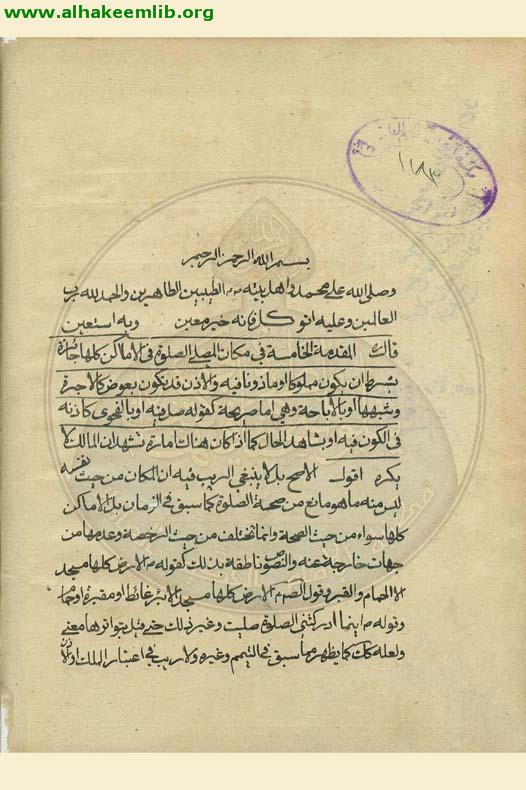 www.alhakeemlib.org
١١٨٣
بسم الله الرحمن الرحيم
وصلى الله على محمد واهل بيته الطيبين الطاهرين والحمد لله رب
العالمين وعليه اتوكل فانه خير معين وبه استعين
قال المقدمة الخامسة في مكان المصلي الصلوة في الاماكن كلها جائزة
بشرط ان يكون مملوكا او ماذونا فيه والاذن قد يكون بعوض كالاجرة
وشبهها او بالاباحة وهي اما صريحة كقوله صل فيه او بالفحوى كاذنه
في الكون فيه او بشاهد الحال كما اذا كان هناك امارة تشهد ان المالك لا
يكره اقول الاصح بل لا ينبغي الريب فيه ان المكان من حيث نفسه
ليس منه ما هو مانع من صحة الصلوة كما سبق في الزمان بل الاماكن
كلها سواء من حيث الصحة وانما تختلف من حيث الرخصة وعدمها من
جهات خارجة عنه والنصوص ناطقة بذلك كقوله ص الارض كلها مسجد
الا الحمام والقبر وقول الصادق الارض كلها مسجد الا بئر غائط او مقبرة او حمام
وقوله ص اينما ادركتني الصلوة صليت وغير ذلك حتى قيل بتواترها معنى
ولعله كك كما يظهر مما سبق في التيمم وغيره ولا ريب في اعتبار الملك او الاذن